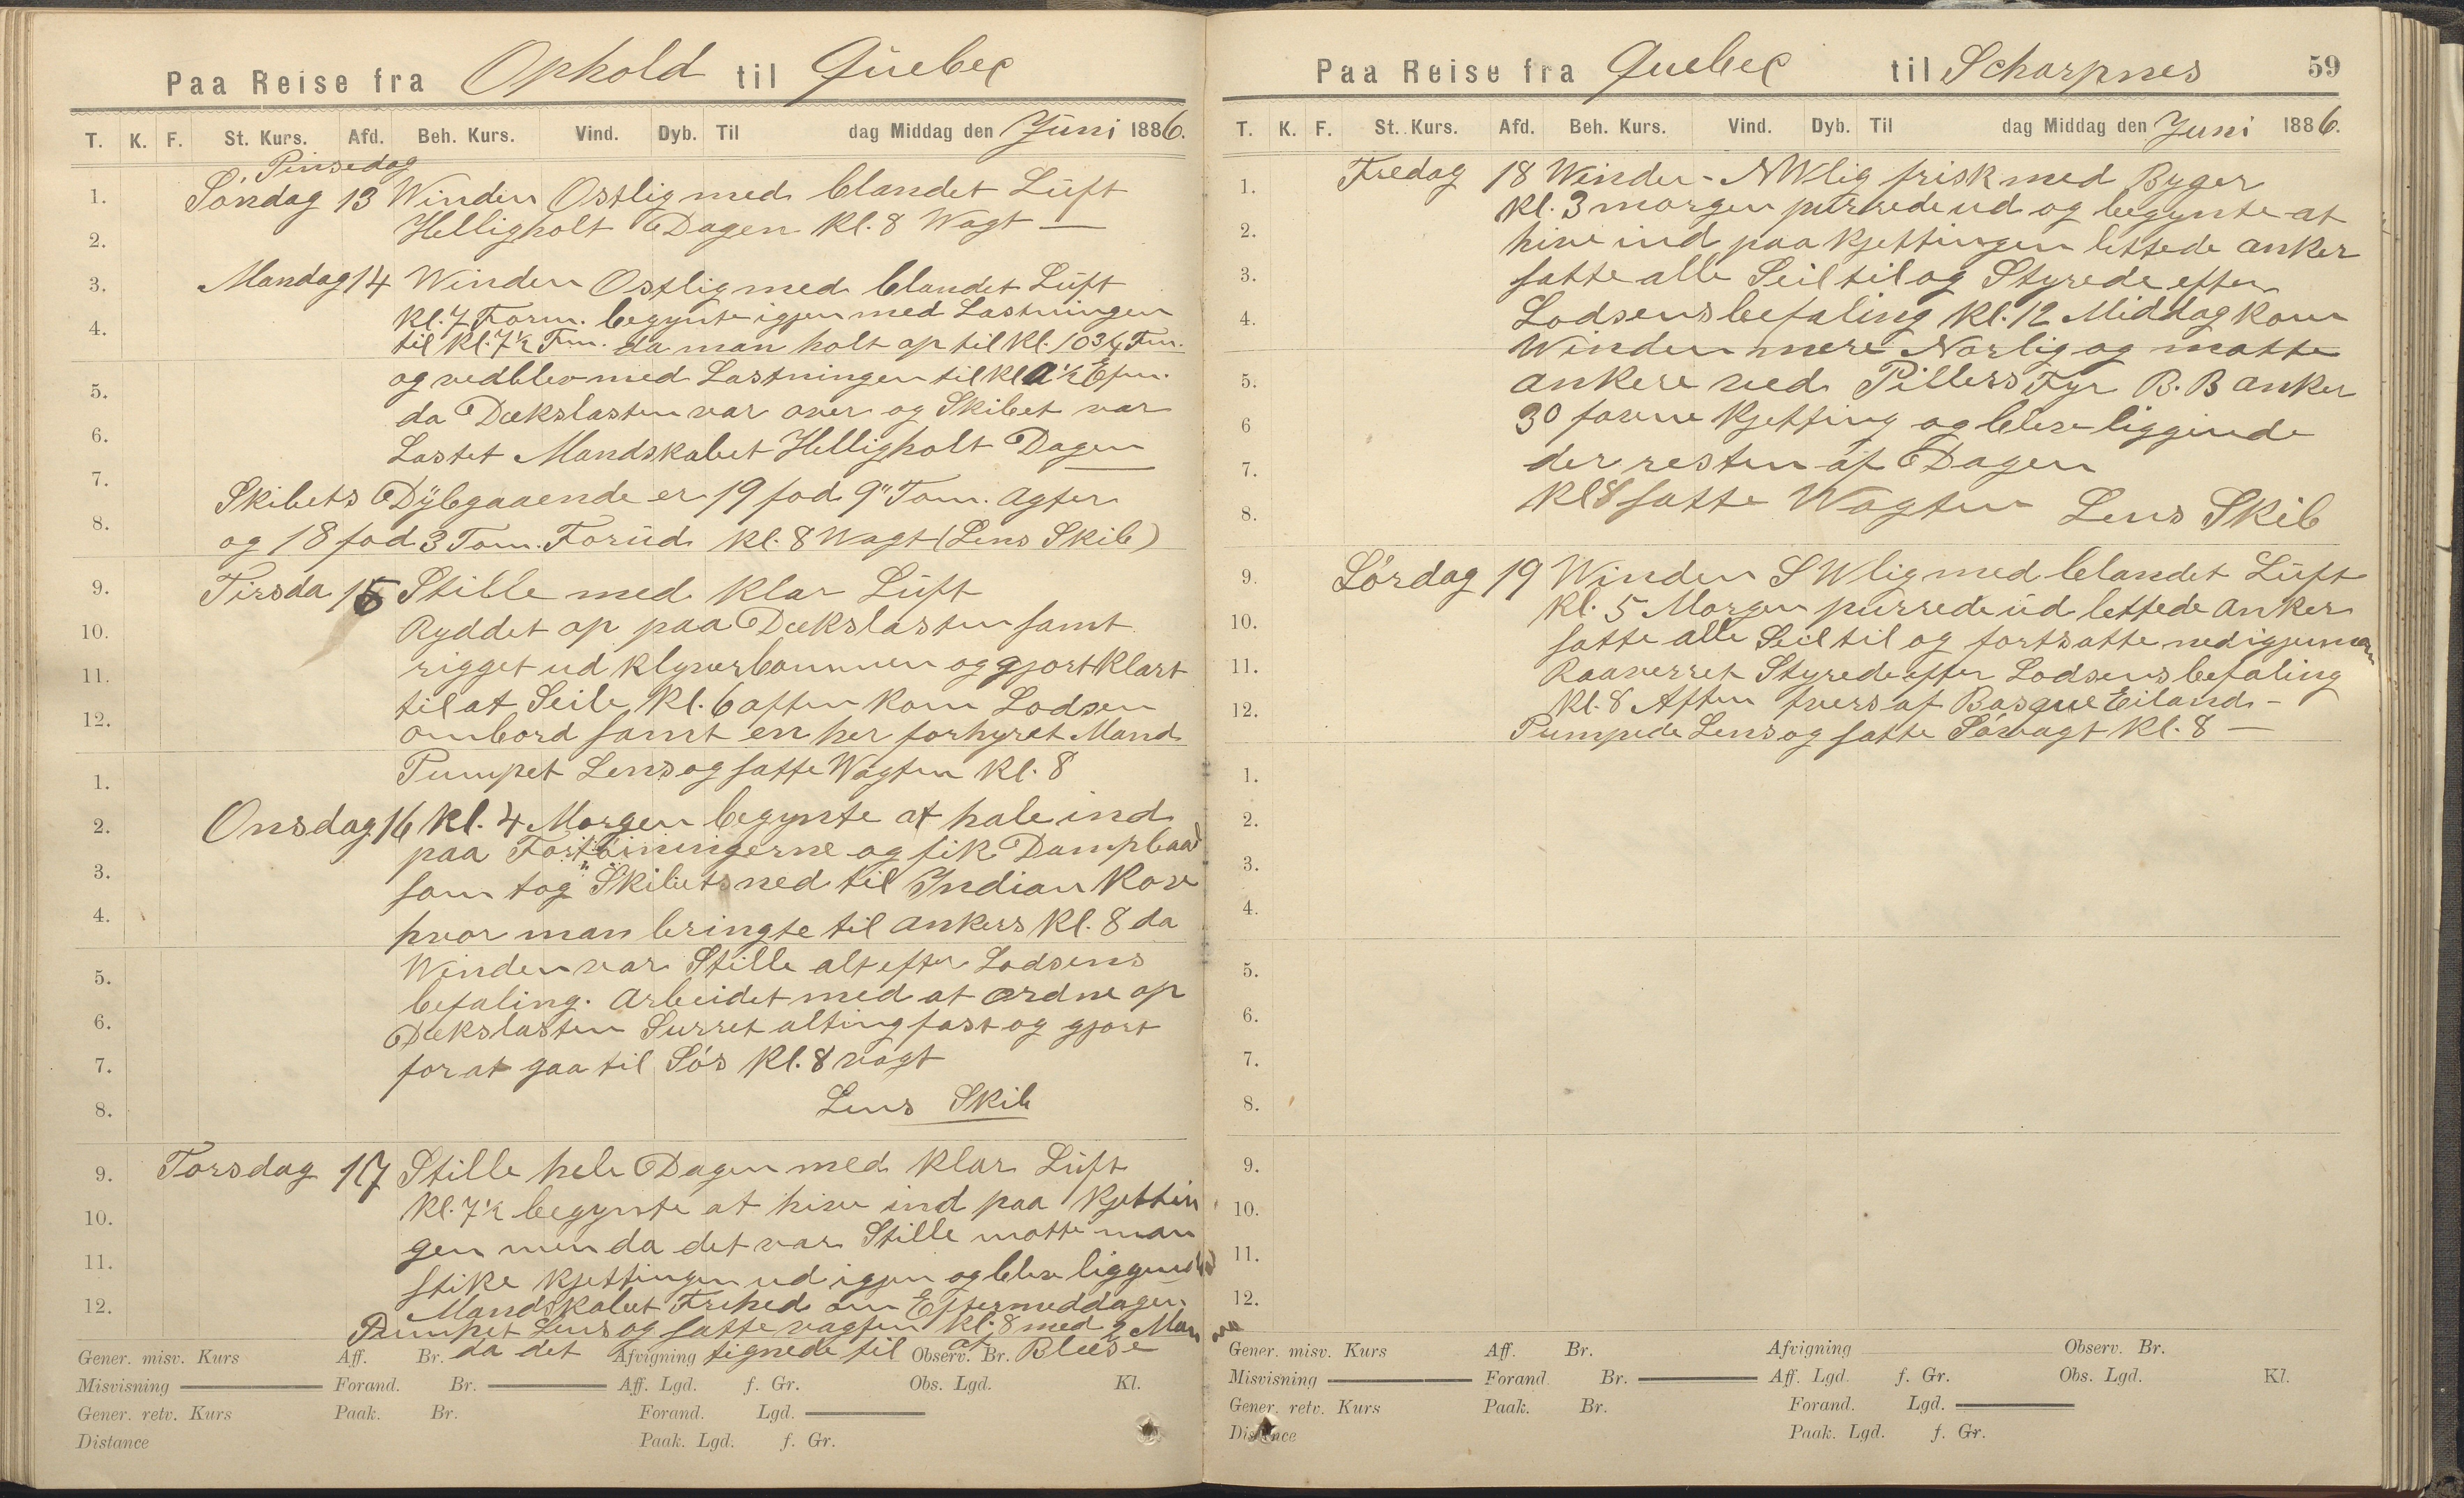 Paa Reise fra Ophold til Quebec
T. K. F. St. Kurs. Afd. Beh. Kurs. Vind. Dyb. Til dag Middag den Juni 1886.
Pinsedag
1. Søndag 13 Winden Ostlig med blandet Luft
2. Helligholt Dagen Kl. 8 Wagt —
3. Mandag 14 Winden Ostlig med blandet Luft
Kl. 7 Form. begynte igjen med Lastningen
4. til Kl. 7½ Fm. da man holt op til Kl. 10 3/4 Fm.
og vedblev med Lastningen til Kl 1½ Efm.
5. da Dækslasten var over og Skibet var
6. Lastet Mandskabet Helligholt Dagen
7. Skibets Dybgaaende er 19 fod 9" Tom. Agter
8. og 18 fod 3 Tom. Forud Kl. 8 Wagt (Lens Skib)
9. Tirsda 15 Stille med Klar Luft
10. Ryddet op paa Dækslasten samt
11. rigget ud Klyverbommen og gjort Klart
til at Seile Kl. 6 aften Kom Lodsen
12. ombord samt en her forhyret Mand
1. Pumpet Lens og satte Wagten Kl. 8
2. Onsdag 16 Kl. 4 Morgen begynte at hale ind
paa Fortöiningerne og fik Dampbaad
3. som tog Skibet ned til Indian Kov
4. hvor man bringte til ankers Kl. 8 da
5. Winden var Stille alt efter Lodsens
befaling. Arbeidet med at ordne op
6. Dækslasten Surret alting fast og gjort
7. for at gaa til Søs Kl. 8 vagt
8. Lens Skib
9. Torsdag 17 Stille hele Dagen med Klar Luft
10. Kl. 7½ begynte at hive ind paa Kjettin
gen men da det var Stille motte man
11. stike Kjettingen ud igjen og blev liggende
12. Mandskabet Frihed om Eftermeddagen
Pumpet Lens og satte vagten Kl. 8 med 2 Man
da det tegnede til at Blæse
Gener. misv. Kurs Aff. Br. Afvigning Observ. Br.
Misvisning Forand. Br. Aff. Lgd. f. Gr. Obs. Lgd. Kl.
Gener. retv. Kurs Paak. Br. Forand. Lgd.
Distance Paak. Lgd. f. Gr.
Paa Reise fra Quebec til Scharpnes 59
T. K. F. St. Kurs. Afd. Beh. Kurs. Vind. Dyb. Til dag Middag den Juni 1886.
1. Fredag 18 Winden - NWlig frisk med Byger
Kl. 3 morgen purrede ud og begynte at
2. hive ind paa Kjettingen lettede anker
3. satte alle Seil til og Styrede efter
4. Lodsens befaling Kl. 12 Middag Kom
Winden mere Norlig og motte
5. ankere ved Pillers Fyr B. B anker
6 30 favne Kjetting og blev liggende
7. der resten af Dagen
8. Kl 8 satte Wagten Lens Skib
9. Lørdag 19 Winden SWlig med blandet Luft
Kl. 5 Morgen purrede ud lettede anker
10. satte alle Seil til og fortsatte ned igjenem
11. Raaverset Styrede efter Lodsens befaling
12. Kl. 8 Aften tvers af Basque Eiland -
Pumpede Lens og satte Søvagt Kl. 8 —
1.
2.
3.
4.
5.
6.
7.
8.
9.
10.
11.
12.
Gener. misv. Kurs Aff. Br. Afvigning Observ. Br.
Misvisning Forand. Br. Aff. Lgd. f. Gr. Obs. Lgd. Kl.
Gener. retv. Kurs Paak. Br. Forand. Lgd.
Distance Paak. Lgd. f. Gr.